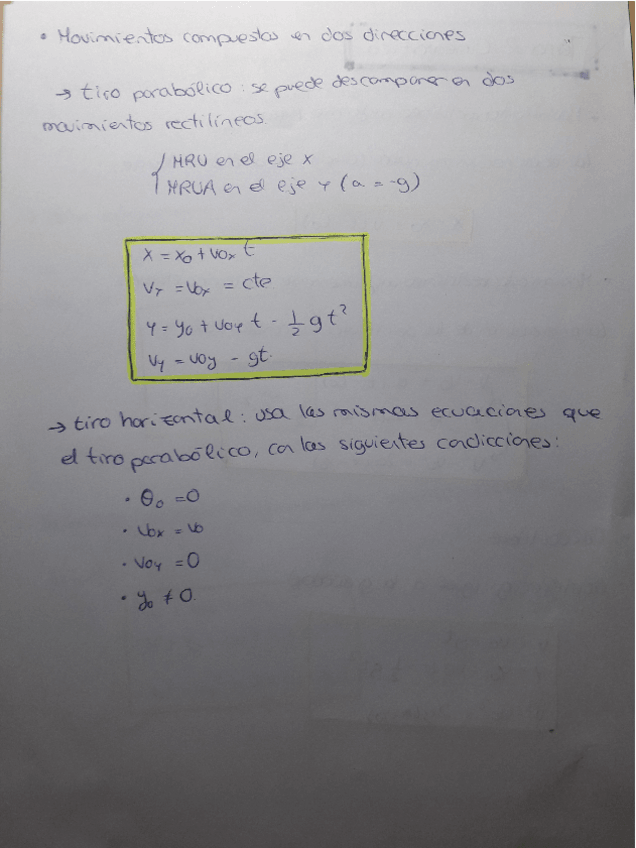 • Movimientos compuestos en dos direcciones
→ tiro parabólico: se puede descomponer en dos
movimientos rectilíneos.
{ MRU en el eje x
MRUA en el eje y (a = -g)
x = x₀ + v₀ₓ t
vₓ = v₀ₓ = cte
y = y₀ + v₀y t - 1/2 g t²
vy = v₀y - gt.
→ tiro horizontal: usa las mismas ecuaciones que
el tiro parabólico, con las siguientes condicciones:
• θ₀ = 0
• v₀ₓ = v₀
• v₀y = 0
• y₀ ≠ 0.